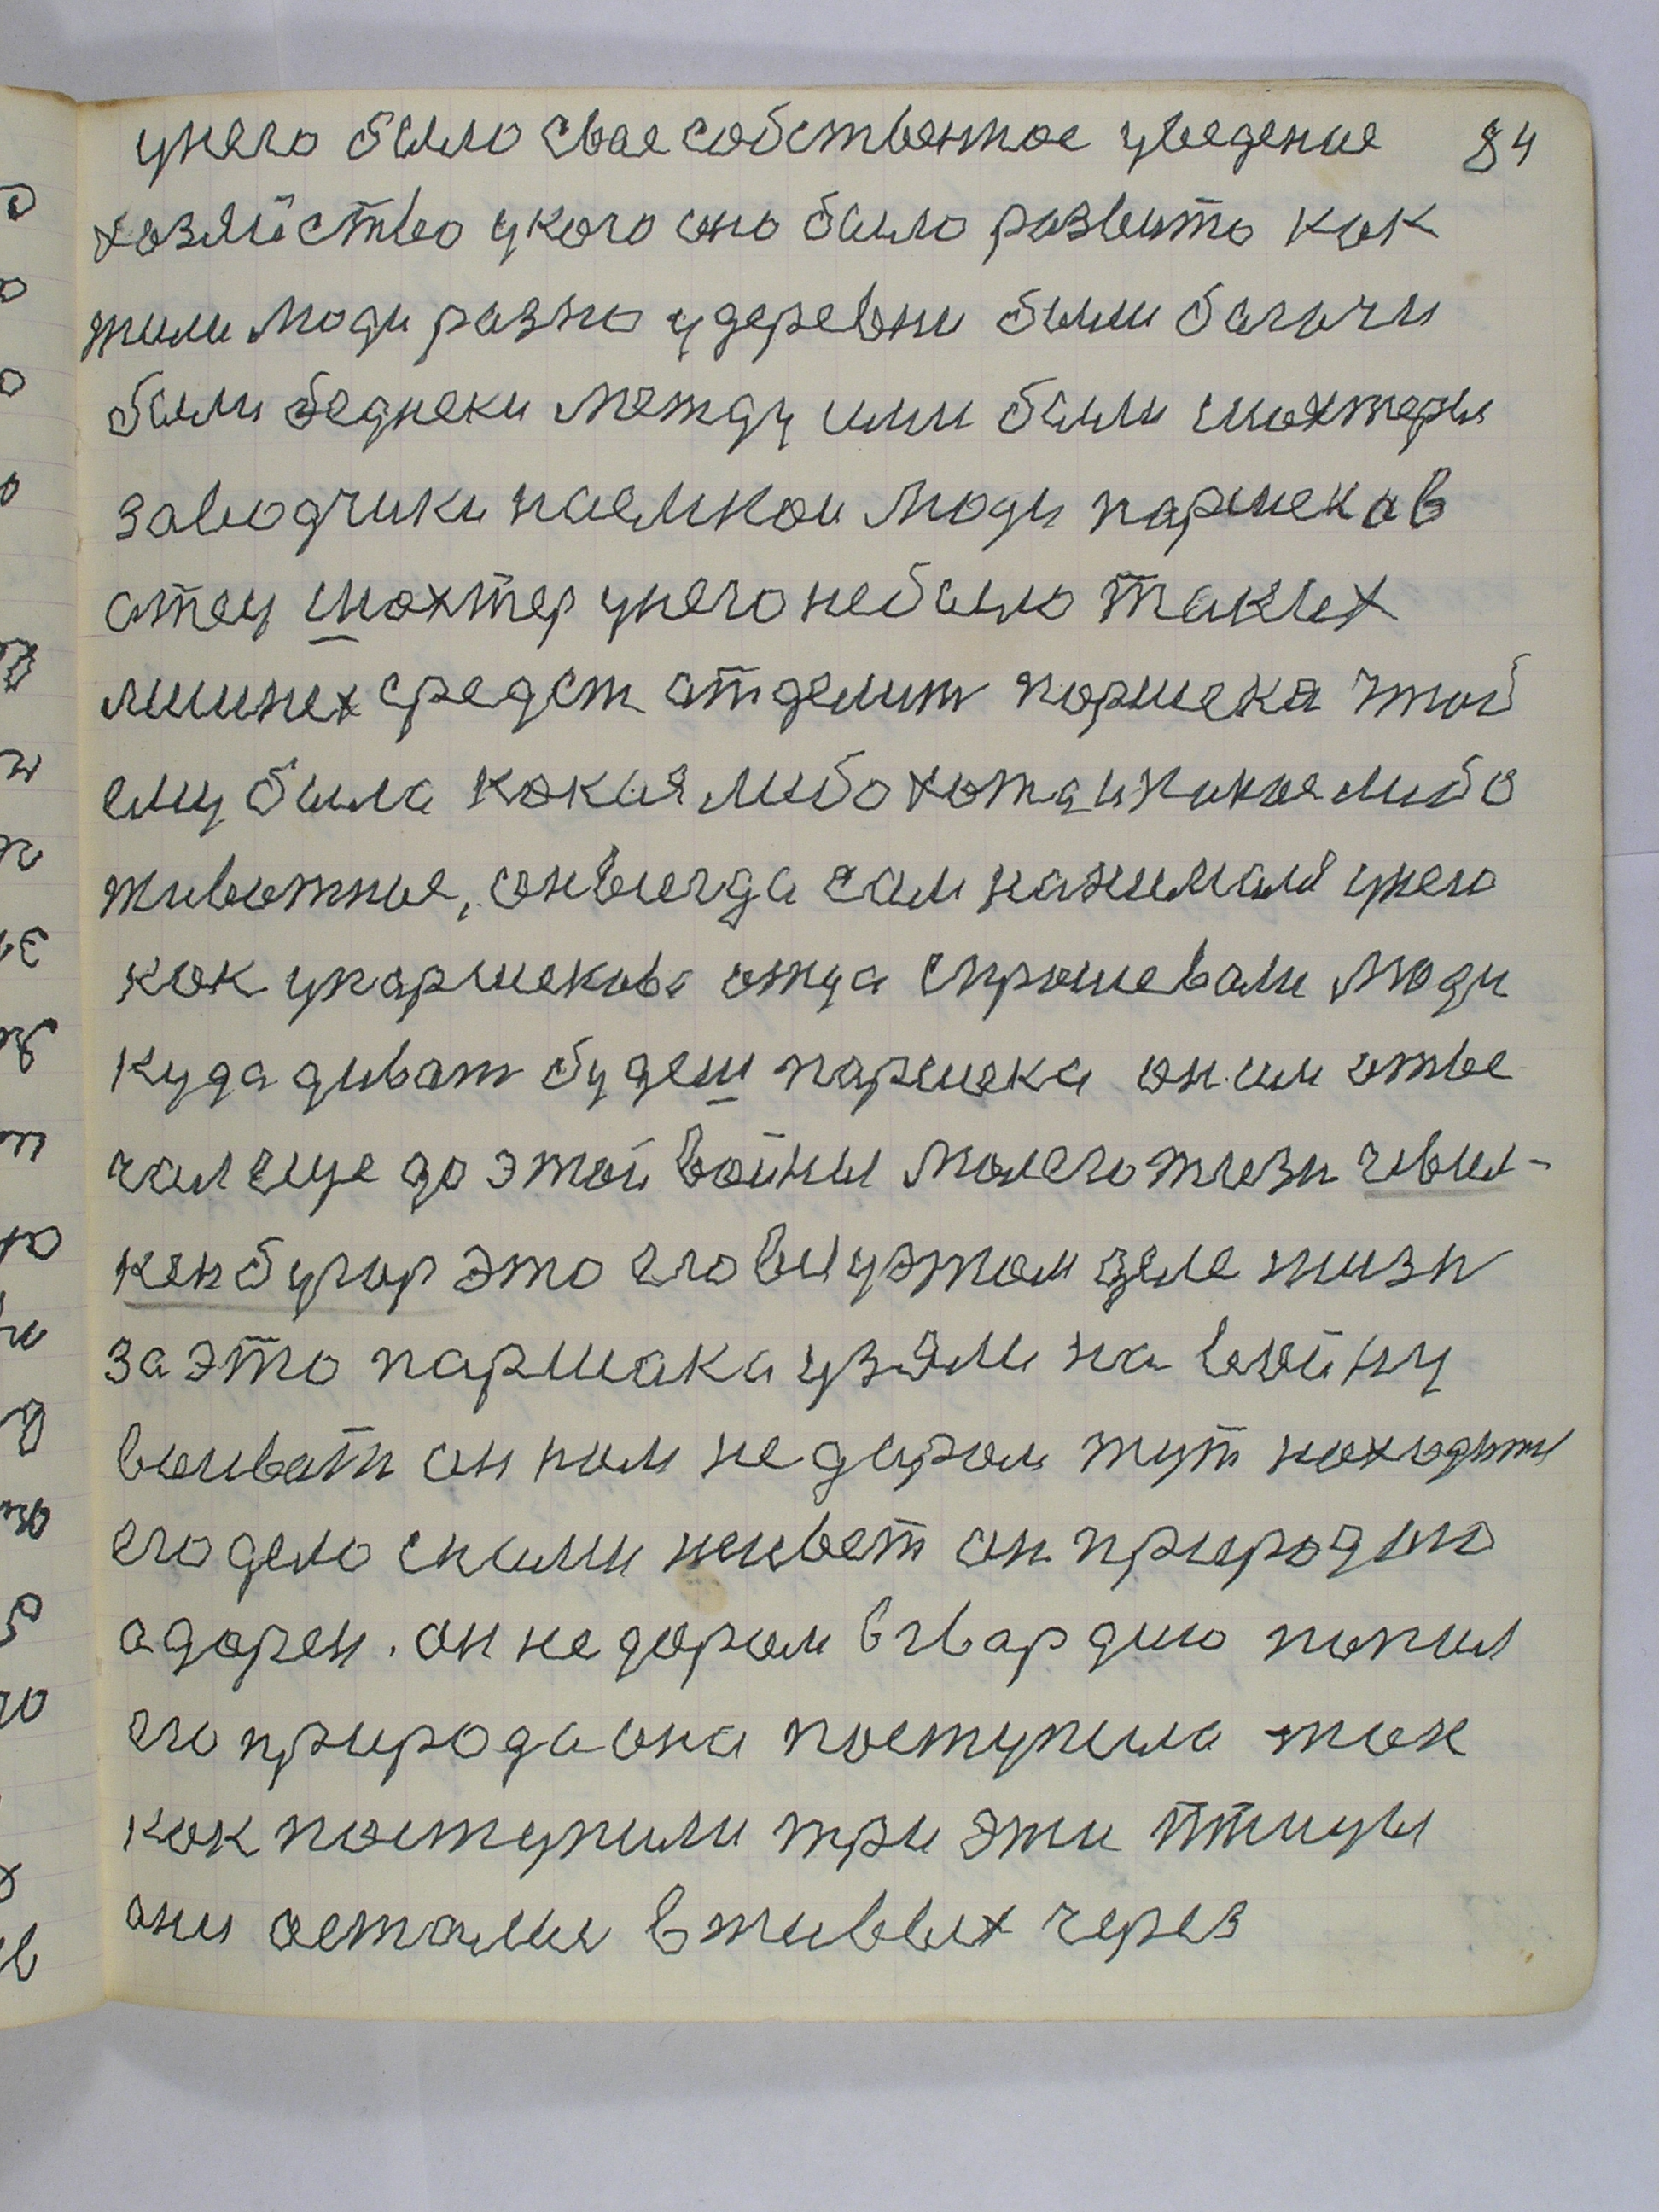 унего было свае собственное уведение 84
хозяйство укого оно было развито как
жили люди разно удеревни были багачи
были беднеки между ими были шахтеры
заводчики наемнои люди паршеков
атец шахтер унего небыло таких
лишнех средст атделит паршека чтоб
ему была какая либо хата и какое либо
животное, он всегда сам нанимался унего
как упаршекова отца спрошевали люди
куда диват будеш паршека он им отве
чал еще до этой войны мол его жизн чивил-
кен бугор это его вси уэтом деле жизн
за это паршака узяли на войну
воиват он нам не даром тут находится
его дело снами живет он природою
адорен. он не даром в гвардию попал
его природа она поступила так
как поступили три эти птицы
они астались вживых через